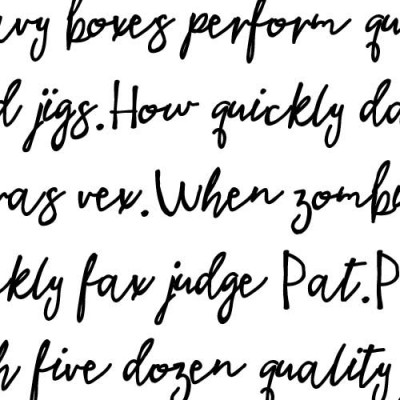 avy boxes perform qu
d jigs.How quickly da
was vex.When zombe
ckly fax judge Pat.P
h five dozen quality